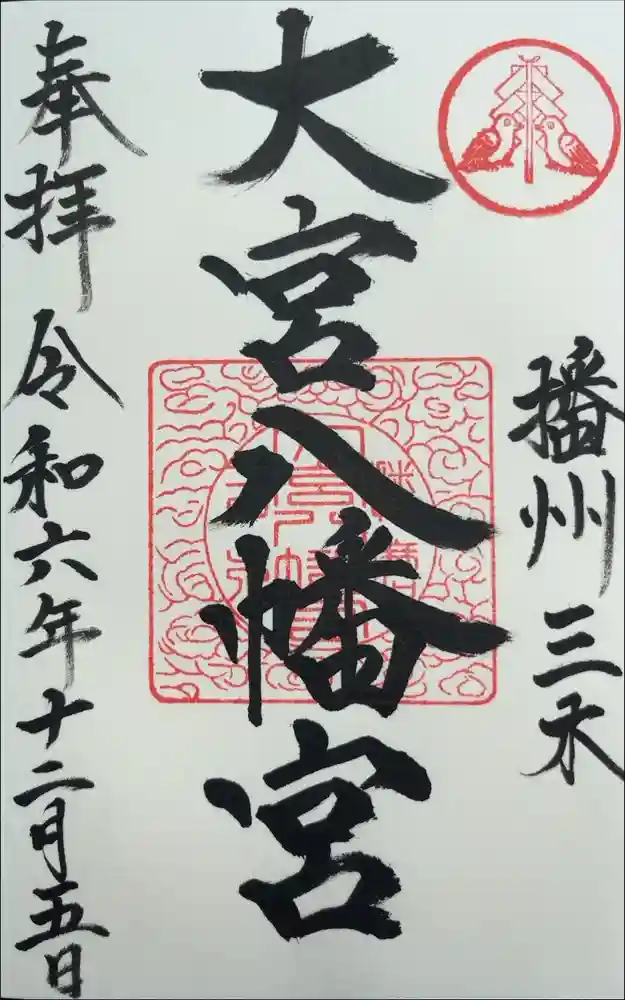 播州三木
大宮八幡宮
奉拝 令和六年十二月五日